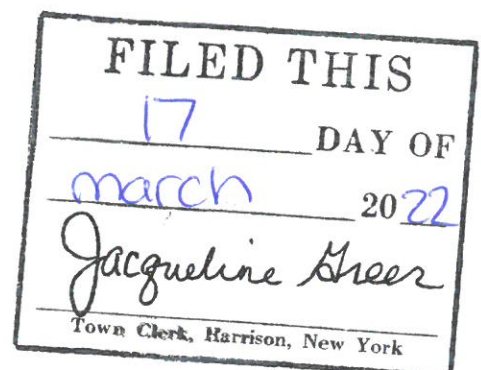 FILED THIS
17 DAY OF
march 2022
Jacqueline Greer
Town Clerk, Harrison, New York